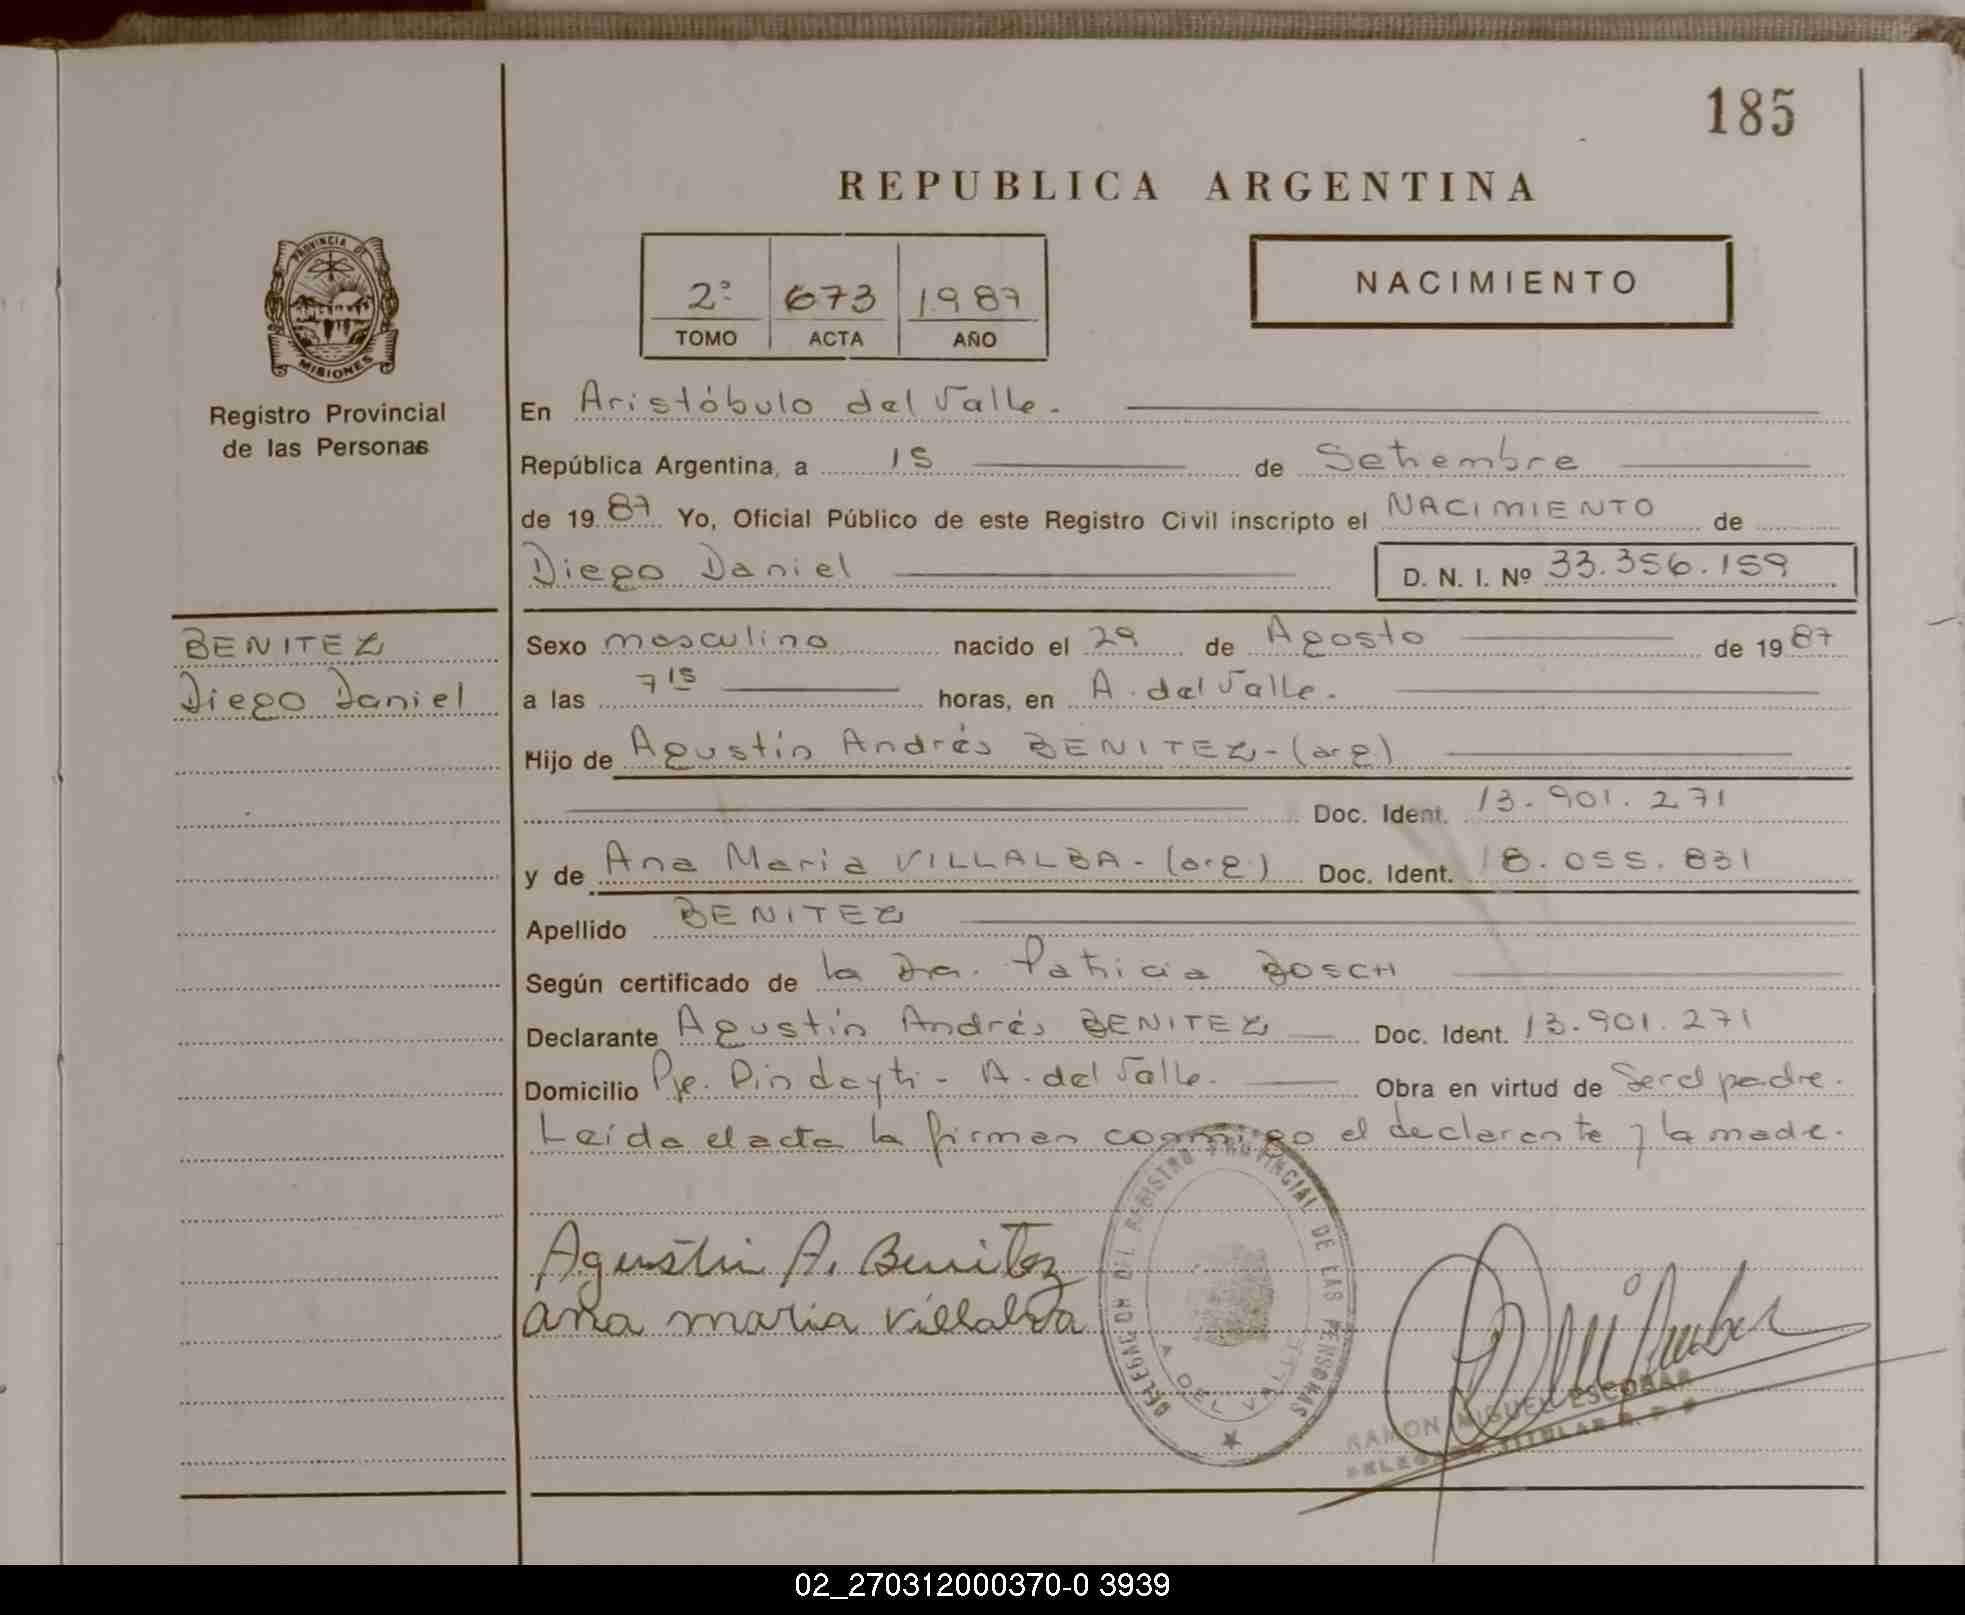 185
REPUBLICA ARGENTINA
2º 673 1987
TOMO ACTA AÑO
NACIMIENTO
PROVINCIA DE
MISIONES
Registro Provincial
de las Personas
En Aristóbulo del Valle.
República Argentina, a 15 de Setiembre
de 1987 Yo, Oficial Público de este Registro Civil inscripto el NACIMIENTO de
Diego Daniel D. N. I. Nº 33.356.159
BENITEZ
Diego Daniel
Sexo masculino nacido el 29 de Agosto de 1987
a las 7 15 horas, en A. del Valle.
Hijo de Agustín Andrés BENITEZ - (arg)
Doc. Ident. 13.901.271
y de Ana Maria VILLALBA - (arg) Doc. Ident. 18.055.831
Apellido BENITEZ
Según certificado de la Dra. Patricia BOSCH
Declarante Agustín Andrés BENITEZ Doc. Ident. 13.901.271
Domicilio Pje. Pindayti - A. del Valle. Obra en virtud de Ser el padre.
Leída el acta la firman conmigo el declarante y la madre.
Agustin A. Benitez
ana maria villalba
DELEGACION DEL REGISTRO PROVINCIAL DE LAS PERSONAS
A. DEL VALLE
RAMON MIGUEL ESCOBAR
TITULAR R. P. P.
02_270312000370-0 3939